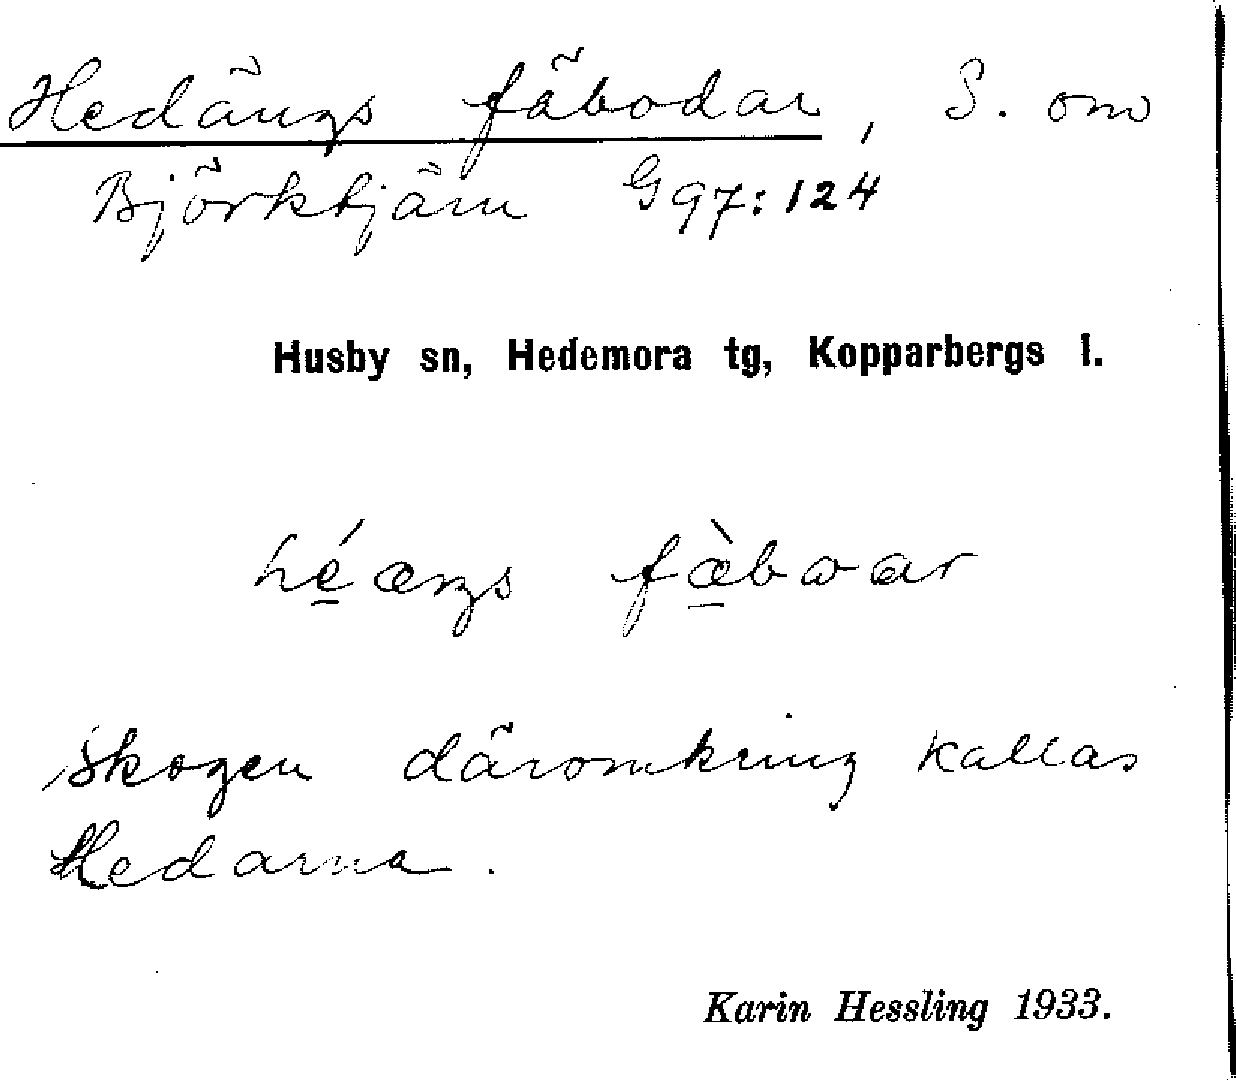 Hedängs fäbodar, S. om
Björktjärn G 97:124
Husby sn, Hedemora tg, Kopparbergs l.
hé̱æŋs fæ̱̀bωar
Skogen däromkring kallas
Hedarna.
Karin Hessling 1933.